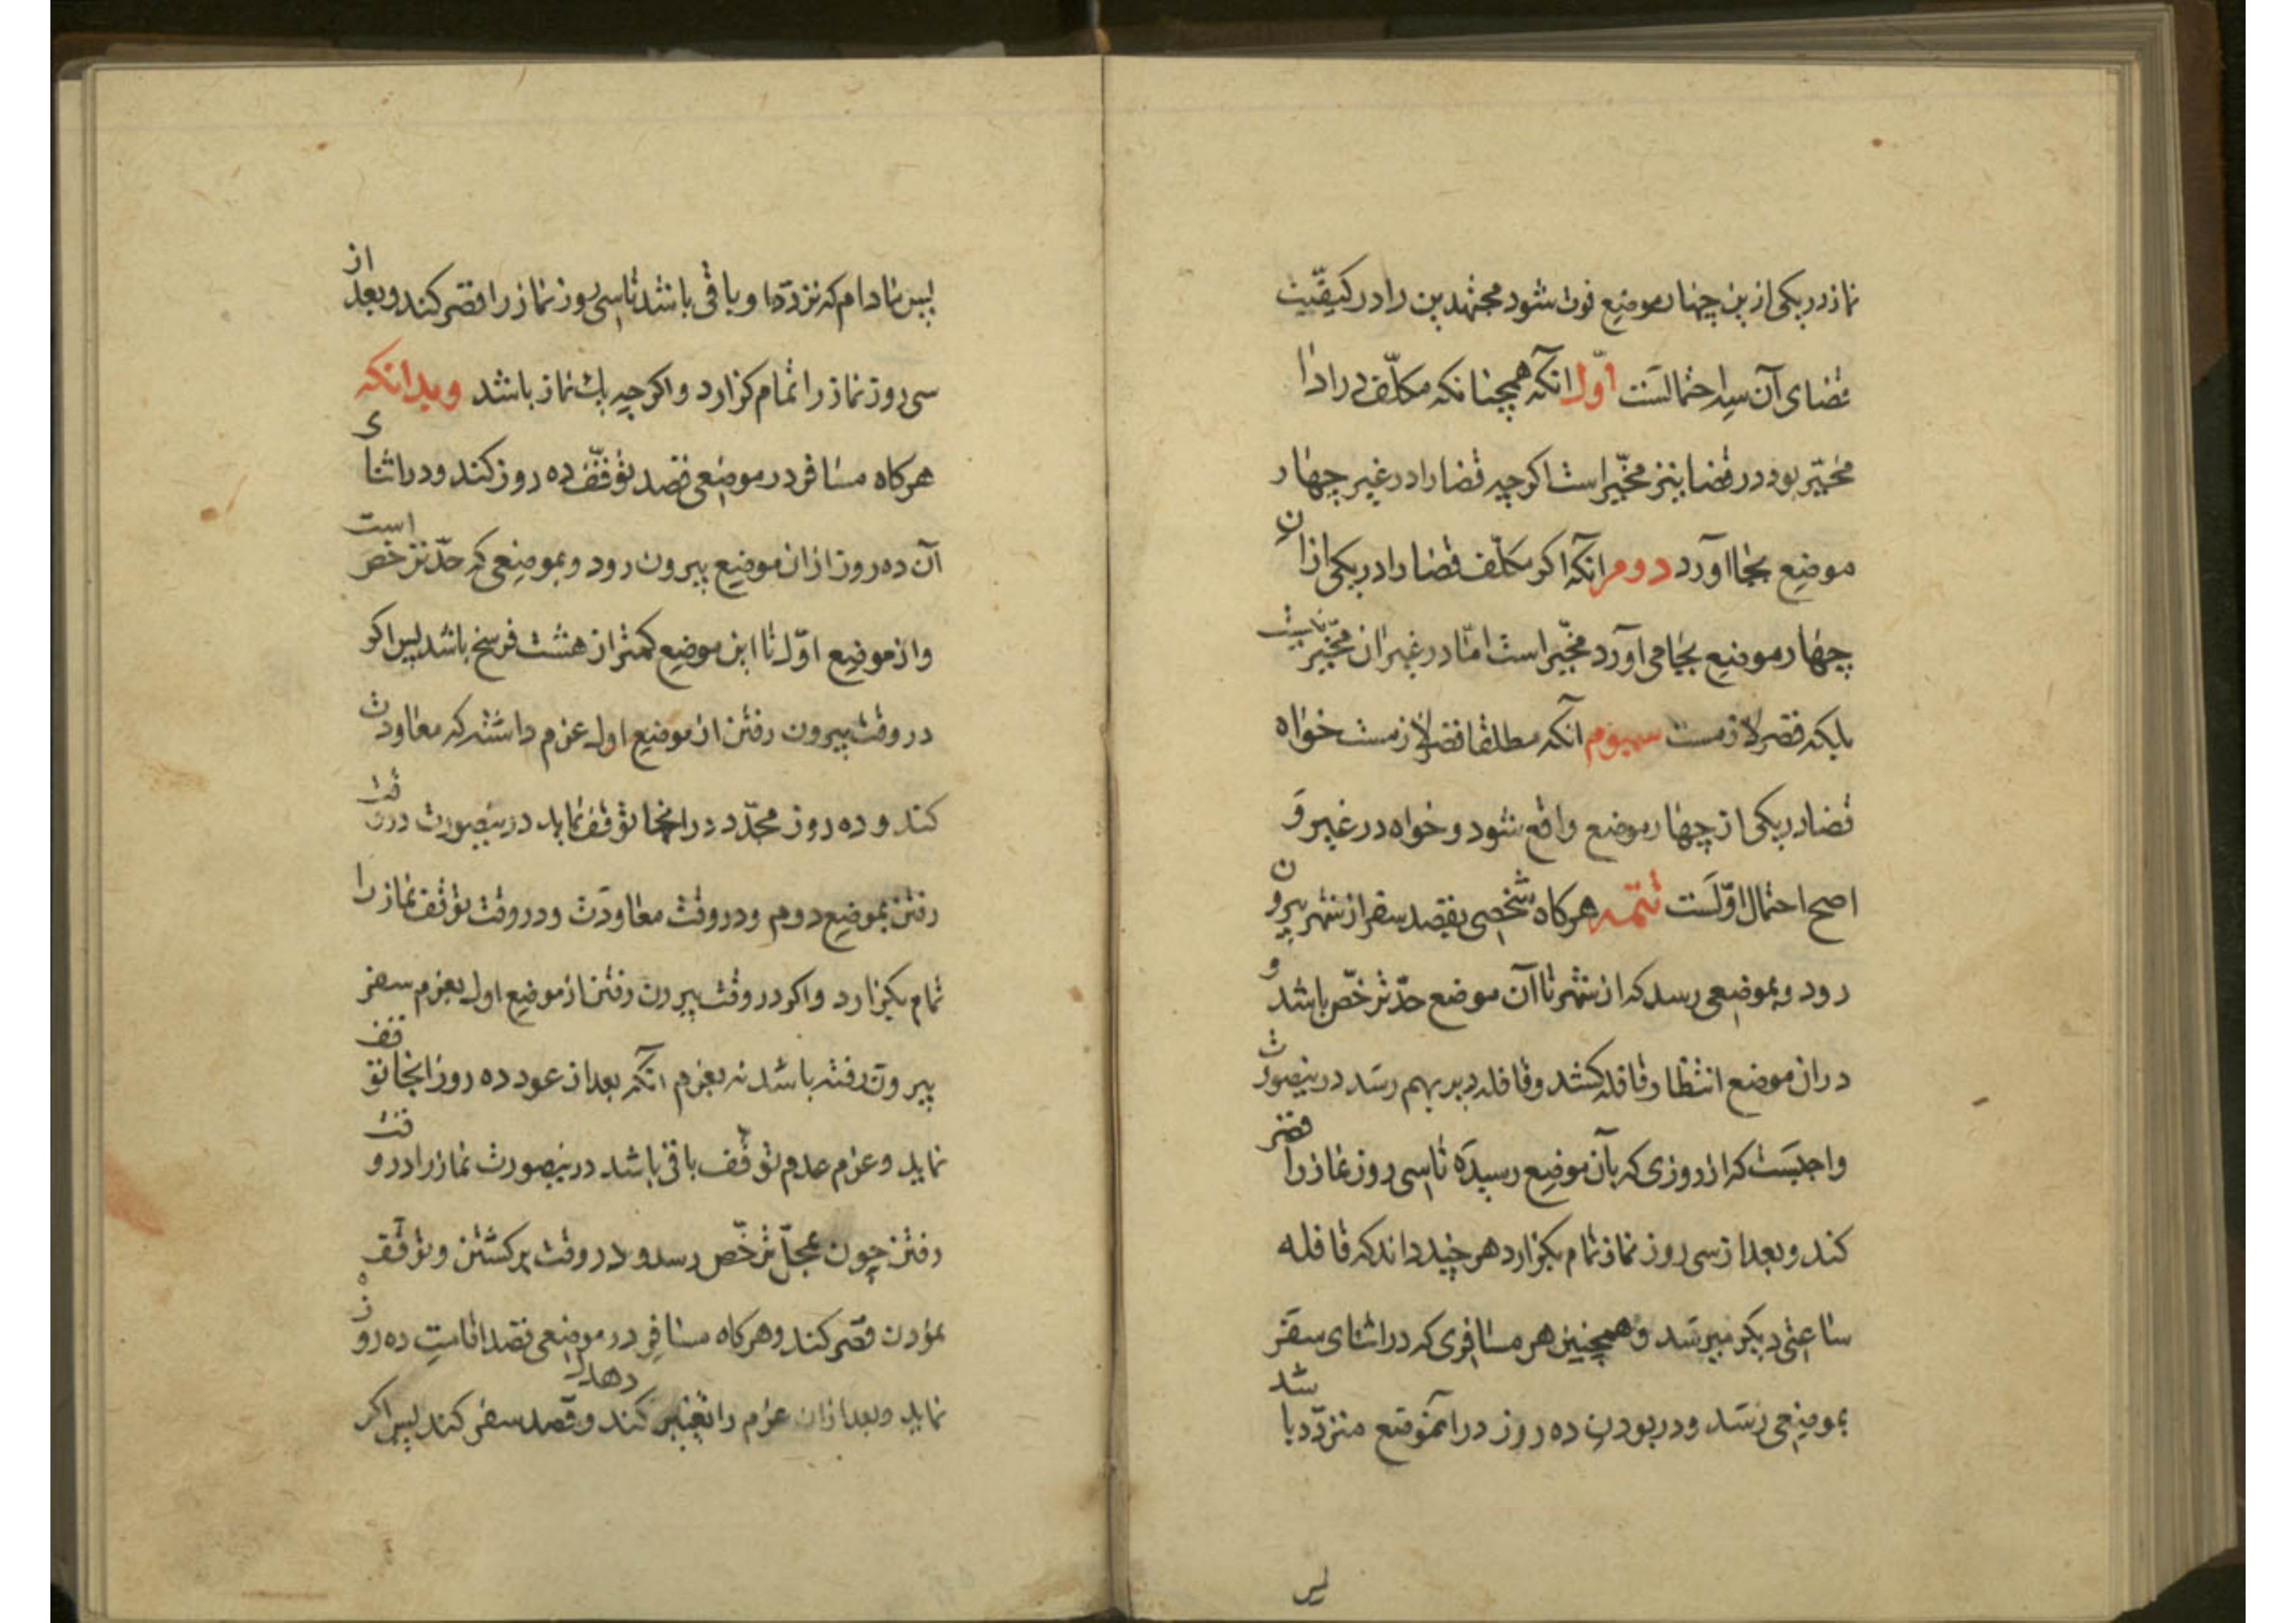 نماز در یکی ازین چهار موضع فوت شود مجتهدین را در کیفیّت
قضای آن سه احتمالست اوّل آنکه همچنانکه مکلّف در ادا
مخیّر بود در قضا نیز مخیّر است اکرچه قضا را در غیر چهار
موضع بجا آورد دوم آنکه اکر مکلّف قضا را در یکی ازان
چهار موضع بجا می آورد مخیّر است امّا در غیر ان مخیّر نیست
بلکه قصر لازمست سیوم آنکه مطلقا قصر لازمست خواه
قضا در یکی از چهار موضع واقع شود و خواه در غیر و
اصح احتمال اوّلست تتمه هرکاه شخصی بقصد سفر از شهر بیرون
رود و بموضعی رسد که از شهر تا آن موضع حدّ ترخّص باشد و
در ان موضع انتظار قافله کشد و قافله دیر بهم رسد درینصورت
واجبست که از روزی که بآن موضع رسیده تا سی روز نماز را قصر
کند و بعد از سی روز نماز تمام بکزارد هر چند داند که قافله
ساعتی دیکر میرسد و همچنین هر مسافری که در اثنای سفر
بموضعی رسد و در بودن ده روز در انموضع متردّد باشد
پس
پس مادام که تردّد او باقی باشد تا سی روز نماز را قصر کند و بعد از
سی روز نماز را تمام کزارد و اکرچه یك نماز باشد وبدانکه
هرکاه مسافر در موضعی قصد توقّف ده روز کند و در اثنای
آن ده روز ازان موضع بیرون رود و بموضعی که حدّ ترخص است
و از موضع اوّل تا این موضع کمتر از هشت فرسخ باشد پس اکر
در وقت بیرون رفتن از موضع اول عزم داشته که معاودت
کند و ده روز مجدّد در انجا توقف نماید درینصورت در وقت
رفتن بموضع دوم و در وقت معاودت و در وقت توقف نماز را
تمام بکزارد و اکر در وقت بیرون رفتن از موضع اول بعزم سفر
بیرون رفته باشد نه بعزم آنکه بعد از عود ده روز انجا توقف
نماید و عزم عدم توقّف باقی باشد درینصورت نماز را در وقت
رفتن چون بمحلّ ترخّص رسد و در وقت برکشتن و توقّف
نمودن قصر کند و هرکاه مسافر در موضعی قصد اقامت ده روز
نماید و بعد ازان عزم را تغییر دهد و قصد سفر کند پس اکر